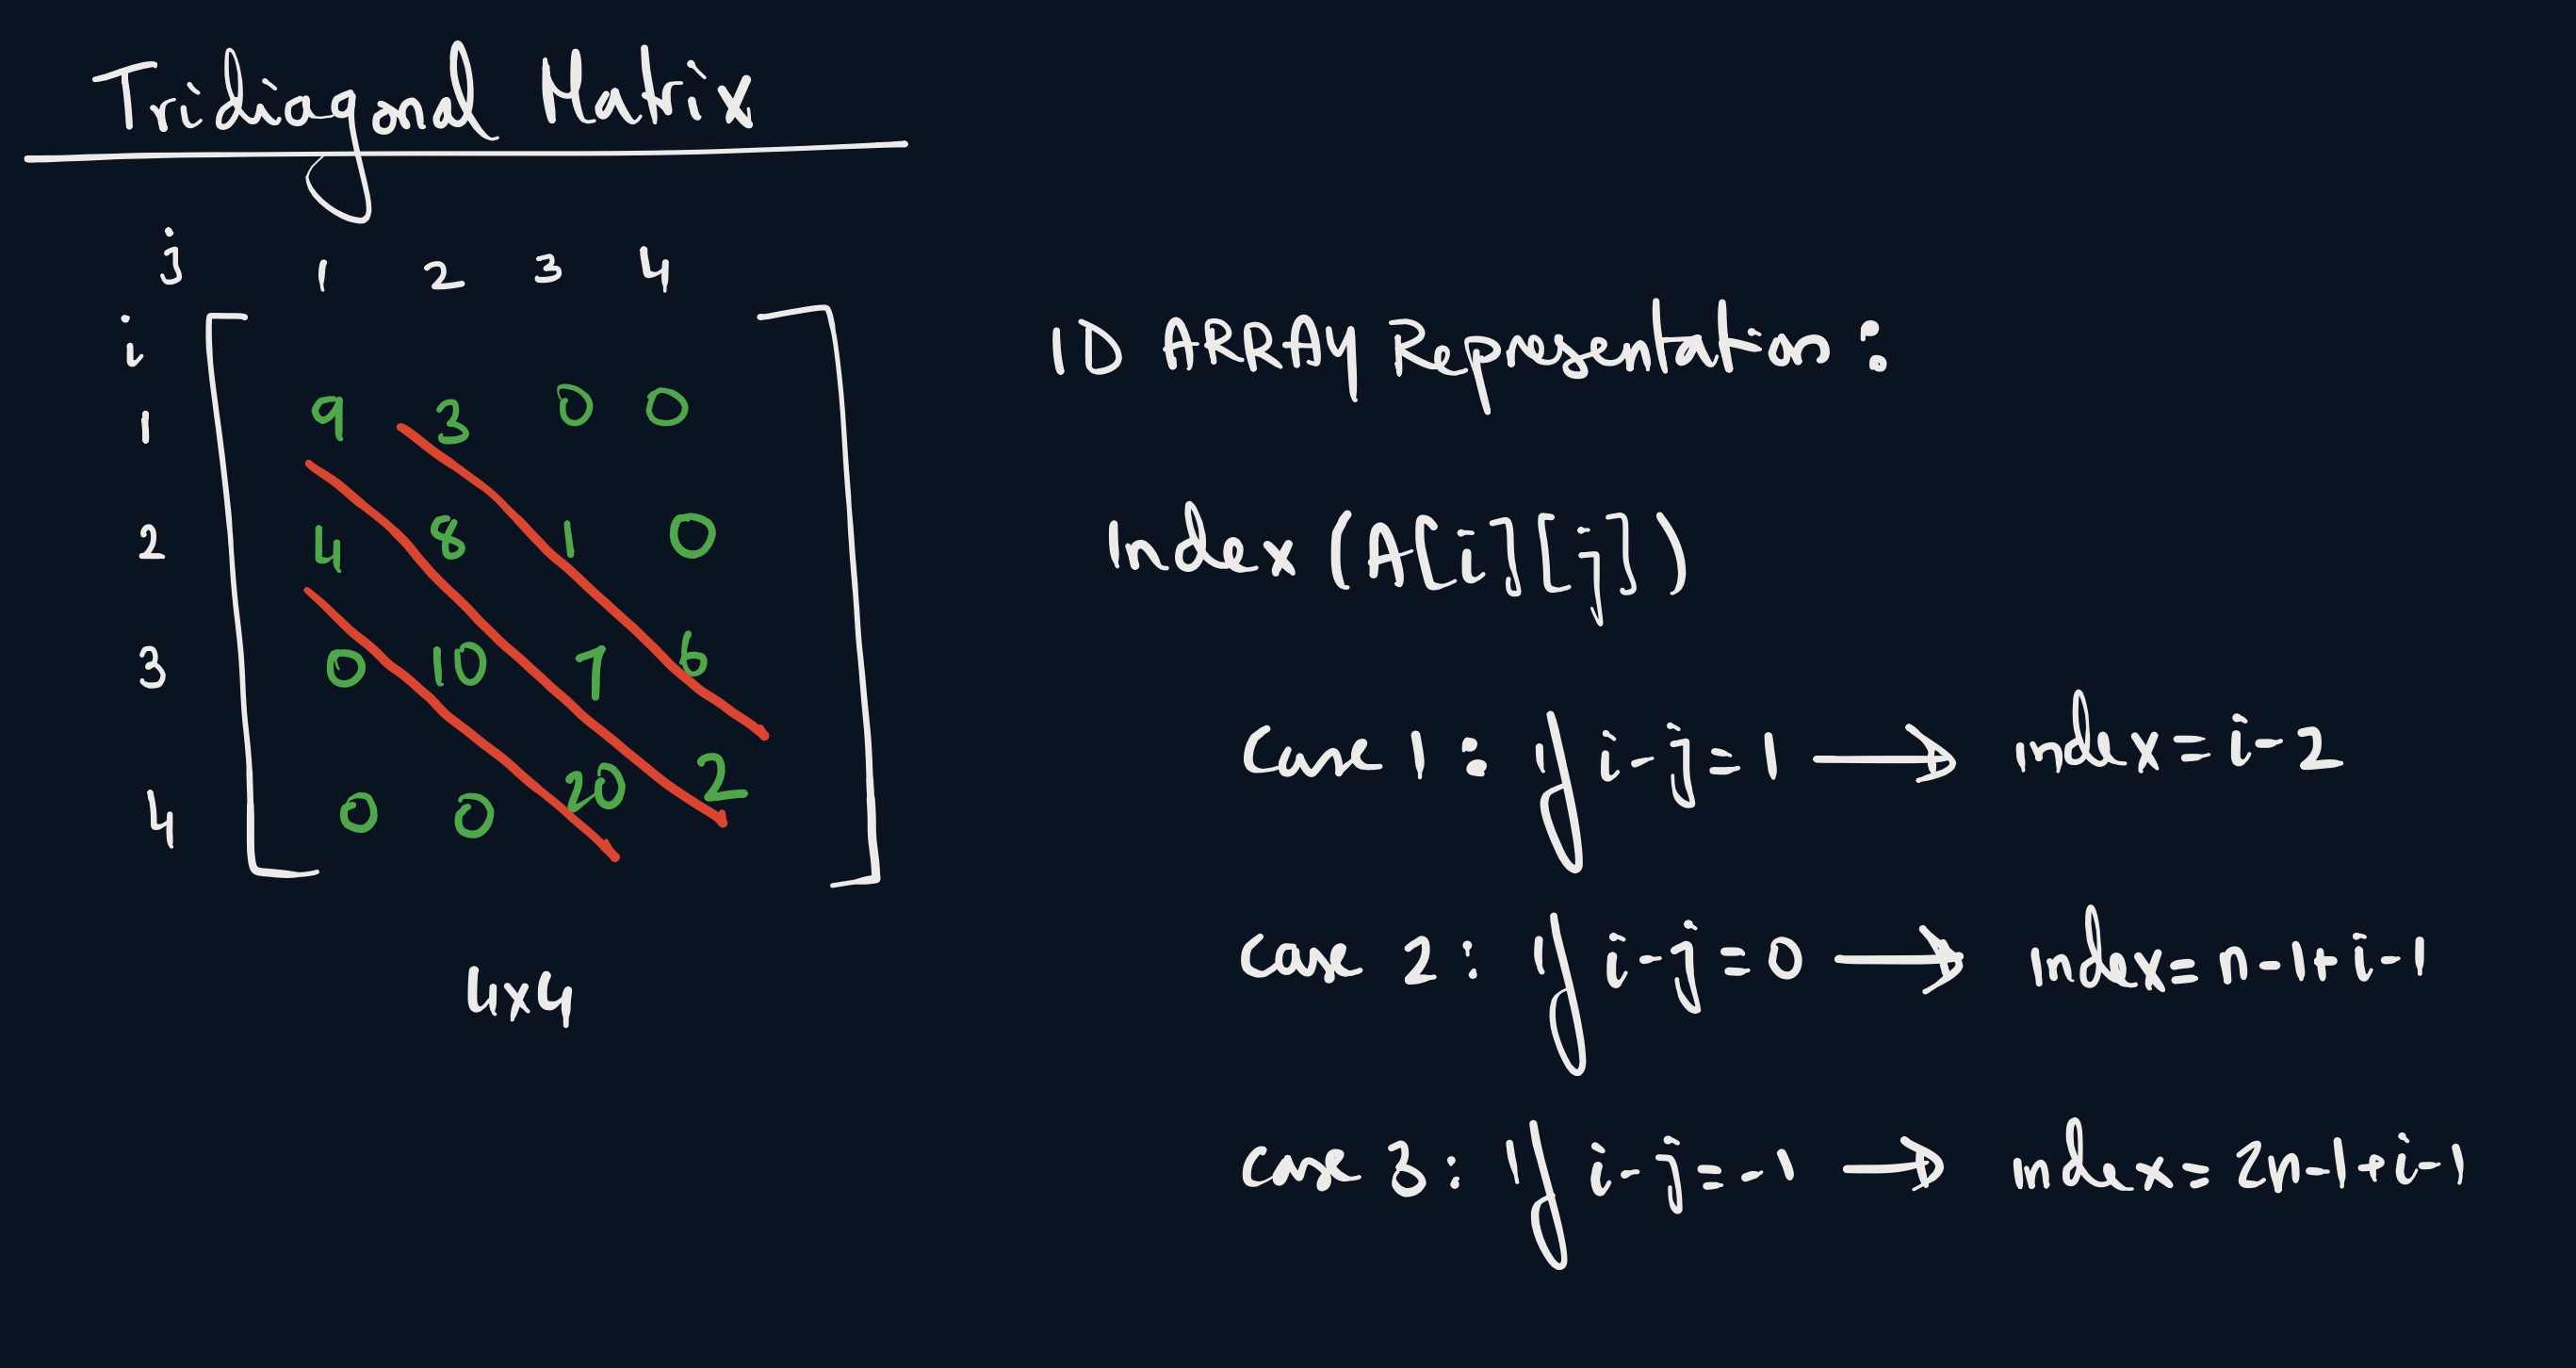 Tridiagonal Matrix
j 1 2 3 4
i
1 9 3 0 0
2 4 8 1 0
3 0 10 7 6
4 0 0 20 2
4x4
1D ARRAY Representation:
Index (A[i][j])
Case 1: If i-j=1 → index=i-2
Case 2: If i-j=0 → index=n-1+i-1
Case 3: If i-j=-1 → index=2n-1+i-1